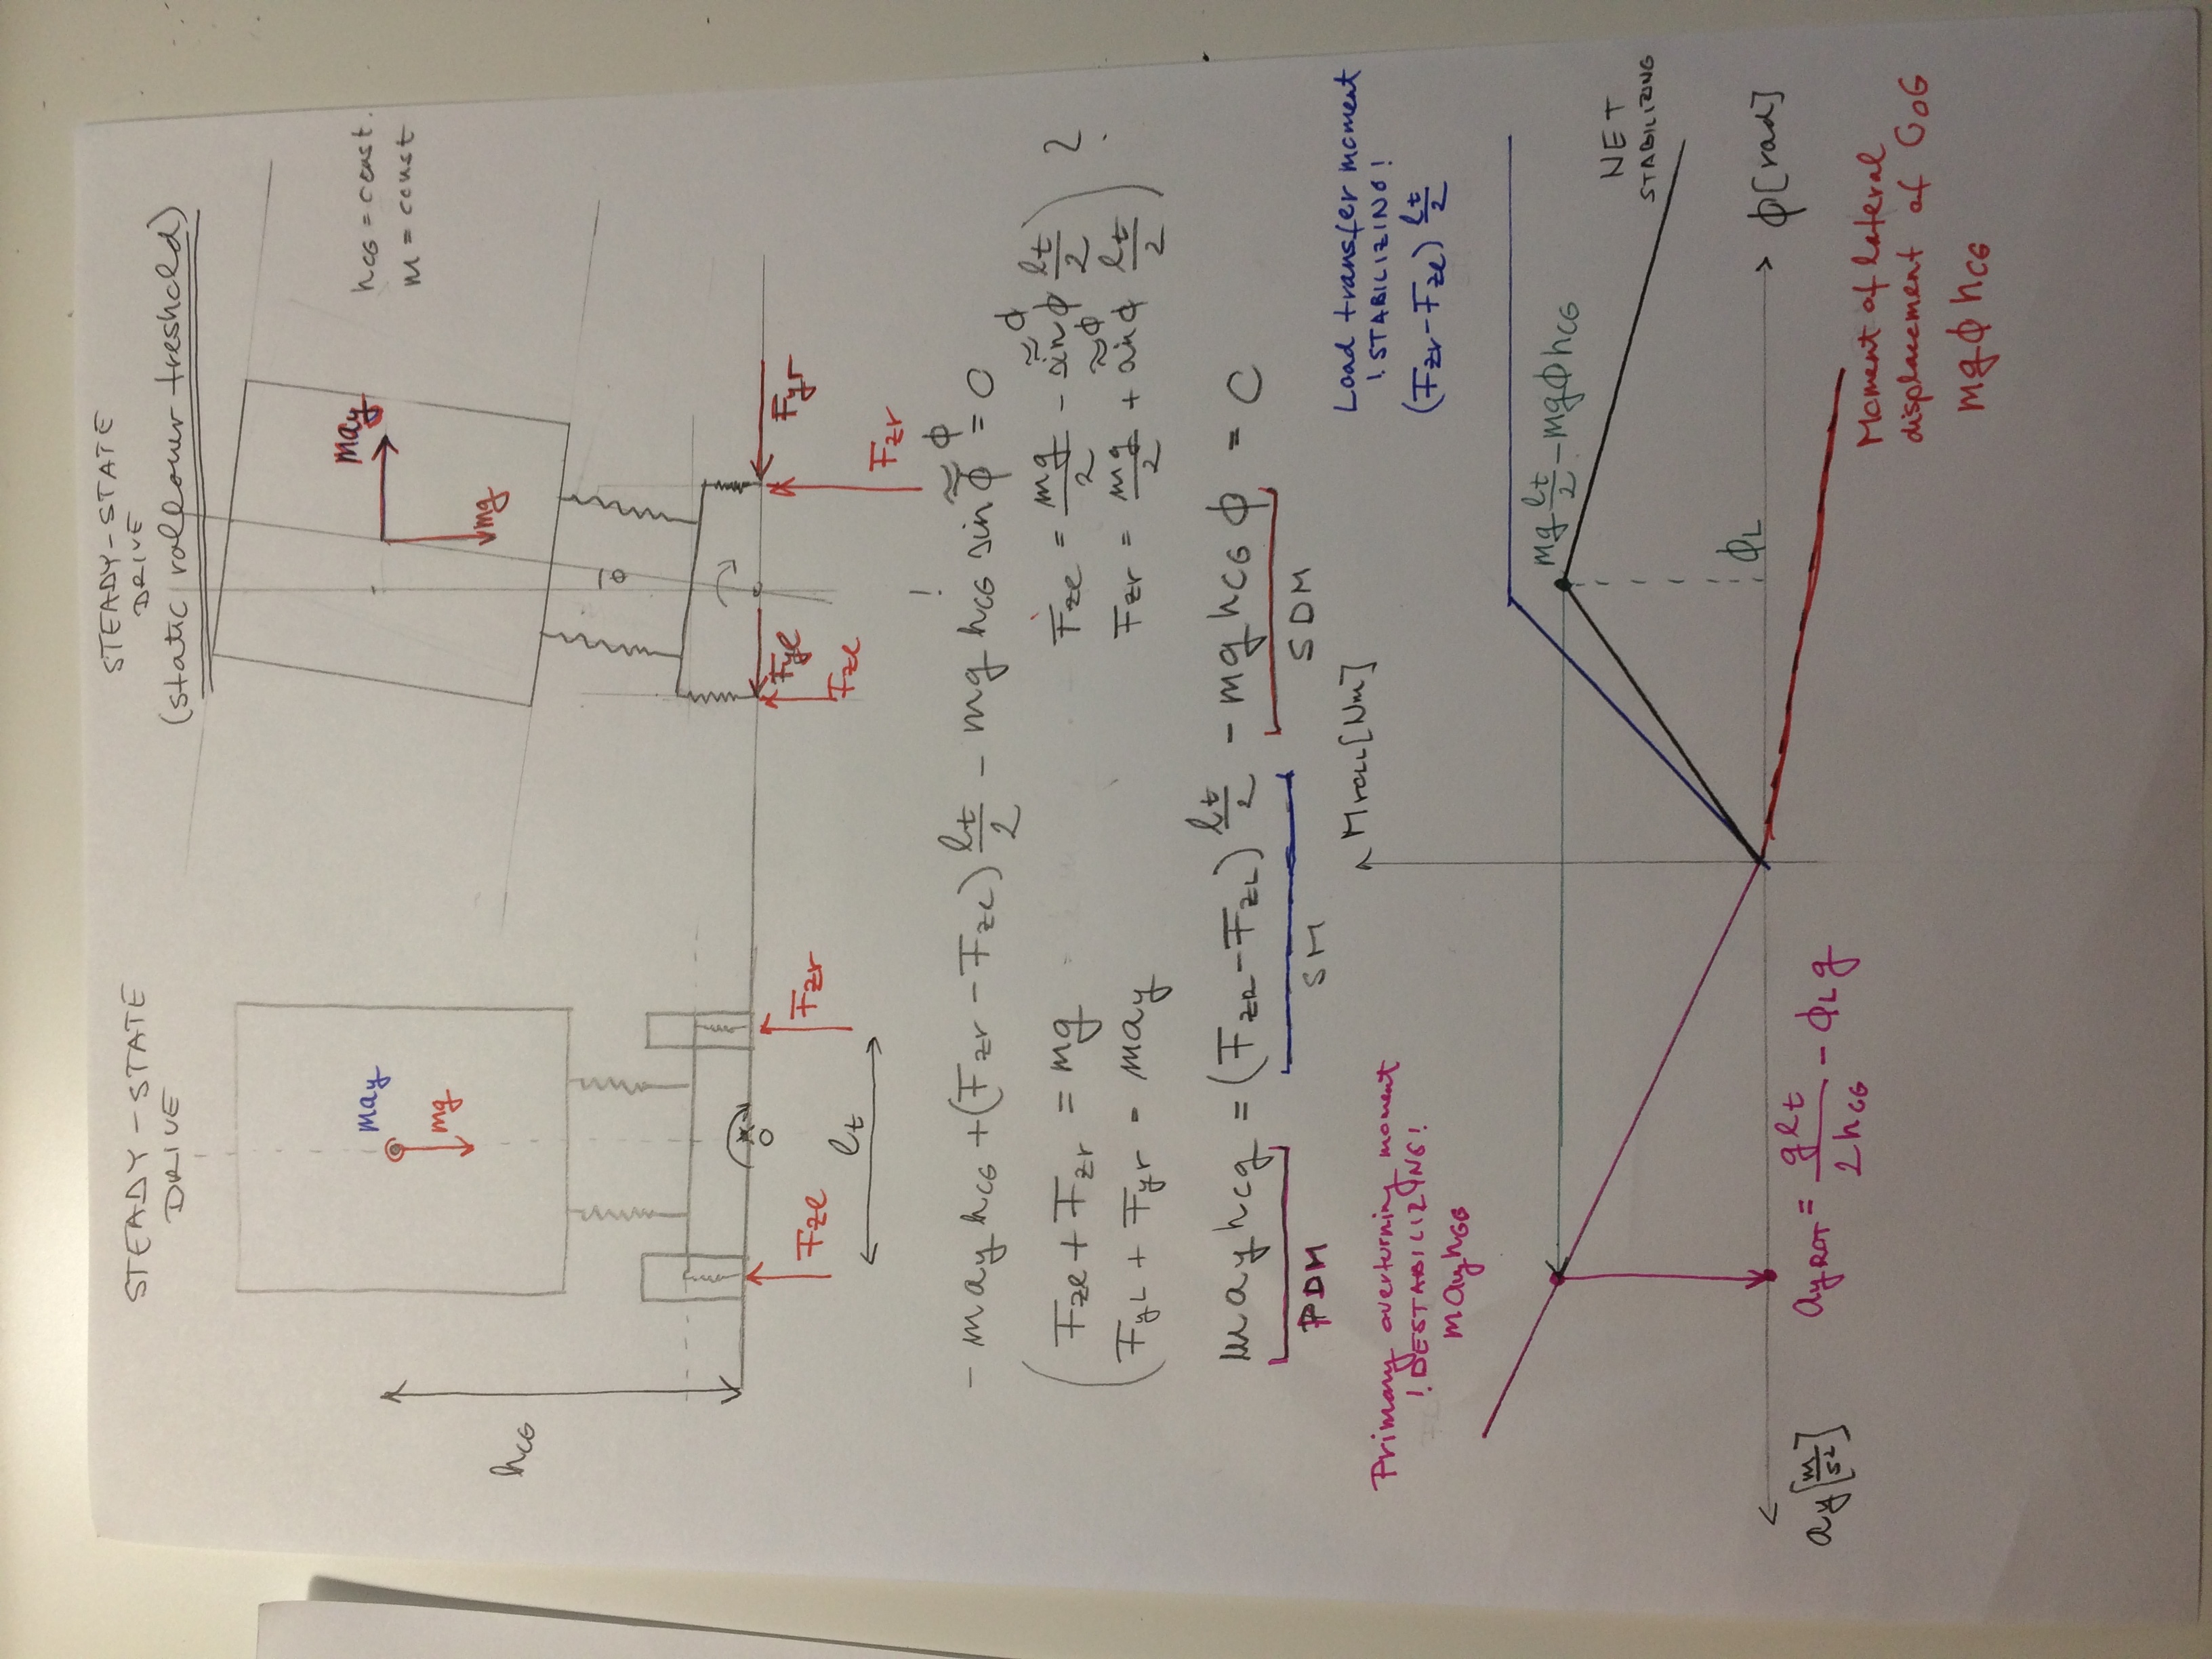 STEADY-STATE
DRIVE
STEADY-STATE
DRIVE
(static rollover treshold)
may
mg
hCG
O
Fzl
Fzr
lt
may
mg
hCG = const.
m = const
θ
Fyl
Fyr
Fzl
Fzr
!
- may hCG + (Fzr - Fzl) lt/2 - mg hCG sin ϕ ≈ ϕ = 0
Fzl + Fzr = mg
FyL + Fyr = may
Fzl = mg/2 - sin ϕ ≈ ϕ lt/2
Fzr = mg/2 + sin ϕ ≈ ϕ lt/2
) ?
may hcg = (FzR - FzL) lt/2 - mg hCG ϕ = 0
PDM
SM
SDM
Mroll [Nm]
Load transfer moment
! STABILIZING!
(Fzr - Fzl) lt/2
Primary overturning moment
! DESTABILIZING!
may hCG
mg lt/2 - mgϕhCG
NET
STABILIZING
ϕL
ϕ [rad]
ay [m/s²]
ayROT = glt/2hCG - ϕL g
Moment of lateral
displacement of CoG
mg ϕ hCG